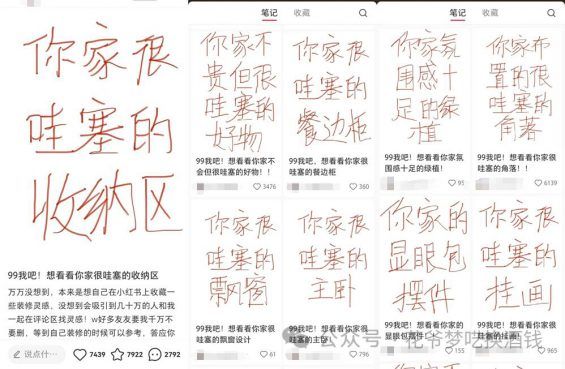 你家很
哇塞的
收纳区
99我吧！想看看你家很哇塞的收纳区
万万没想到，本来是想自己在小红书上收藏
一些装修灵感，没想到会吸引到几十万的人和我
一起在评论区找灵感！w好多友友要我千万不
要删，等到自己装修的时候可以参考，答应你
说点什...
7439
7922
2792
笔记
收藏
你家不
贵但很
哇塞的
好物
99我吧！想看看你家不
会但很哇塞的好物！！
3476
你家很
哇塞的
餐边柜
99我吧，想看看你家很
哇塞的餐边柜
360
你家很
哇塞的
飘窗
99我吧！想看看你家很
哇塞的飘窗设计
61
你家很
哇塞的
主卧
99我吧！想看看你家很
哇塞的主卧！
796
笔记
收藏
你家氛
围感十
足的绿
植
99我吧！想看看你家氛
围感十足的绿植！
95
你家布
置的很
哇塞的
角落
99我吧！想看看你家很
哇塞的角落！！
6139
你家的
显眼包
摆件
99我吧！想看看你家的
显眼包摆件！
你家很
哇塞的
挂画
99我吧！想看看你家很
哇塞的挂画！
公众号：花爷梦呓换酒钱